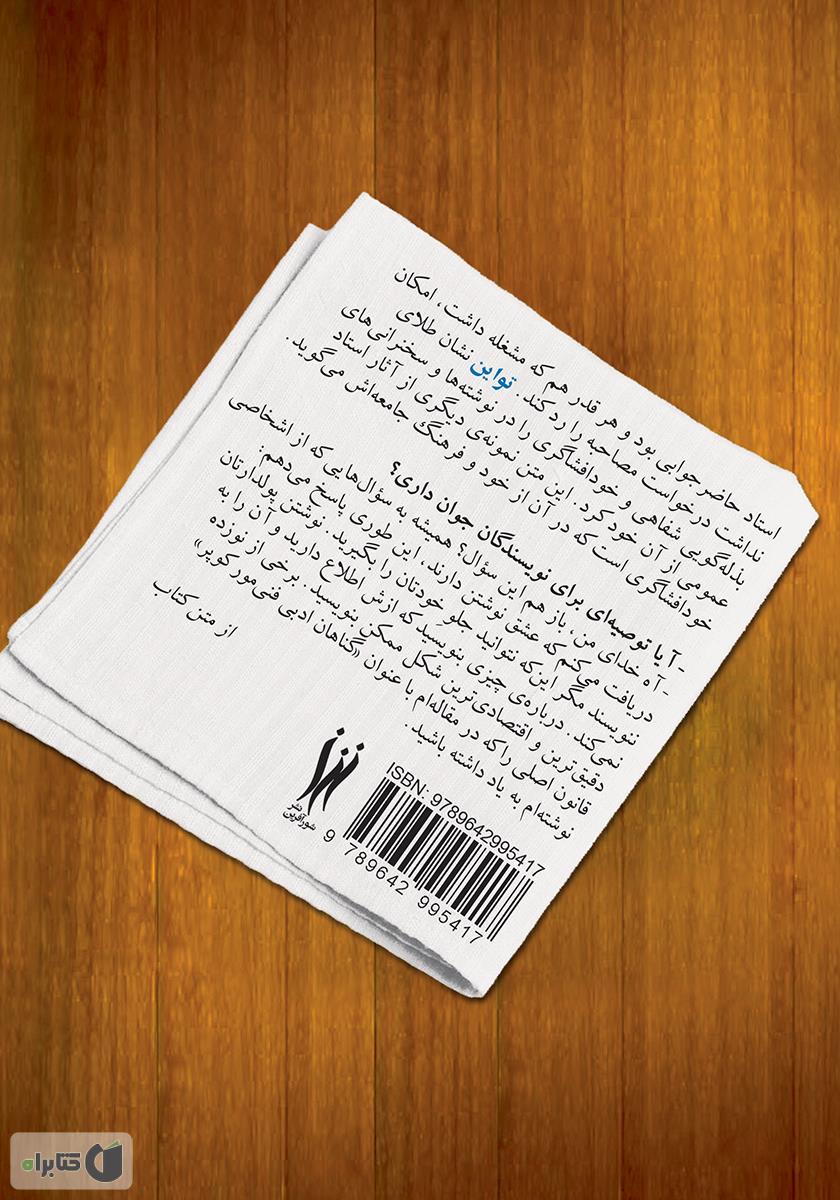 استاد حاضر جوابی بود و هر قدر هم که مشغله داشت، امکان
نداشت درخواست مصاحبه را رد کند. تواین نشان طلای
بذله‌گویی شفاهی و خودافشاگری را در نوشته‌ها و سخنرانی‌های
عمومی از آن خود کرد. این متن نمونه‌ی دیگری از آثار استاد
خودافشاگری است که در آن از خود و فرهنگ جامعه‌اش می‌گوید.
- آیا توصیه‌ای برای نویسندگان جوان داری؟
- آه خدای من، باز هم این سؤال؟ همیشه به سؤال‌هایی که از اشخاصی
دریافت می‌کنم که عشق نوشتن دارند، این طوری پاسخ می‌دهم:
ننویسند مگر این‌که نتوانید جلوِ خودتان را بگیرید. نوشتن پولدارتان
نمی‌کند. درباره‌ی چیزی بنویسید که ازش اطلاع دارید و آن را به
دقیق‌ترین و اقتصادی‌ترین شکل ممکن بنویسید. برخی از نوزده
قانون اصلی را که در مقاله‌ام با عنوان «گناهان ادبی فنی‌مور کوپر»
نوشته‌ام به یاد داشته باشید.
از متن کتاب
نشر
شورآفرین
ISBN: 9789642995417
9 789642 995417
کتابراه